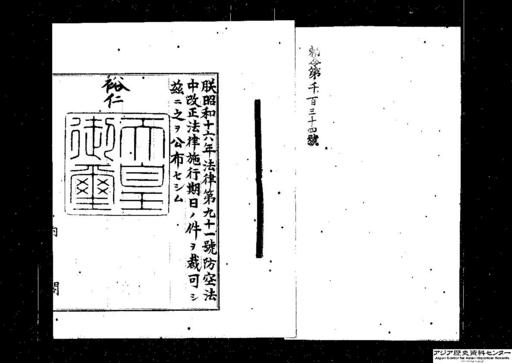 勅令第千百三十四號
朕昭和十六年法律第九十一號防空法
中改正法律施行期日ノ件ヲ裁可シ
茲ニ之ヲ公布セシム
裕仁
天皇
御璽
内閣
アジア歴史資料センター
Japan Center for Asian Historical Records